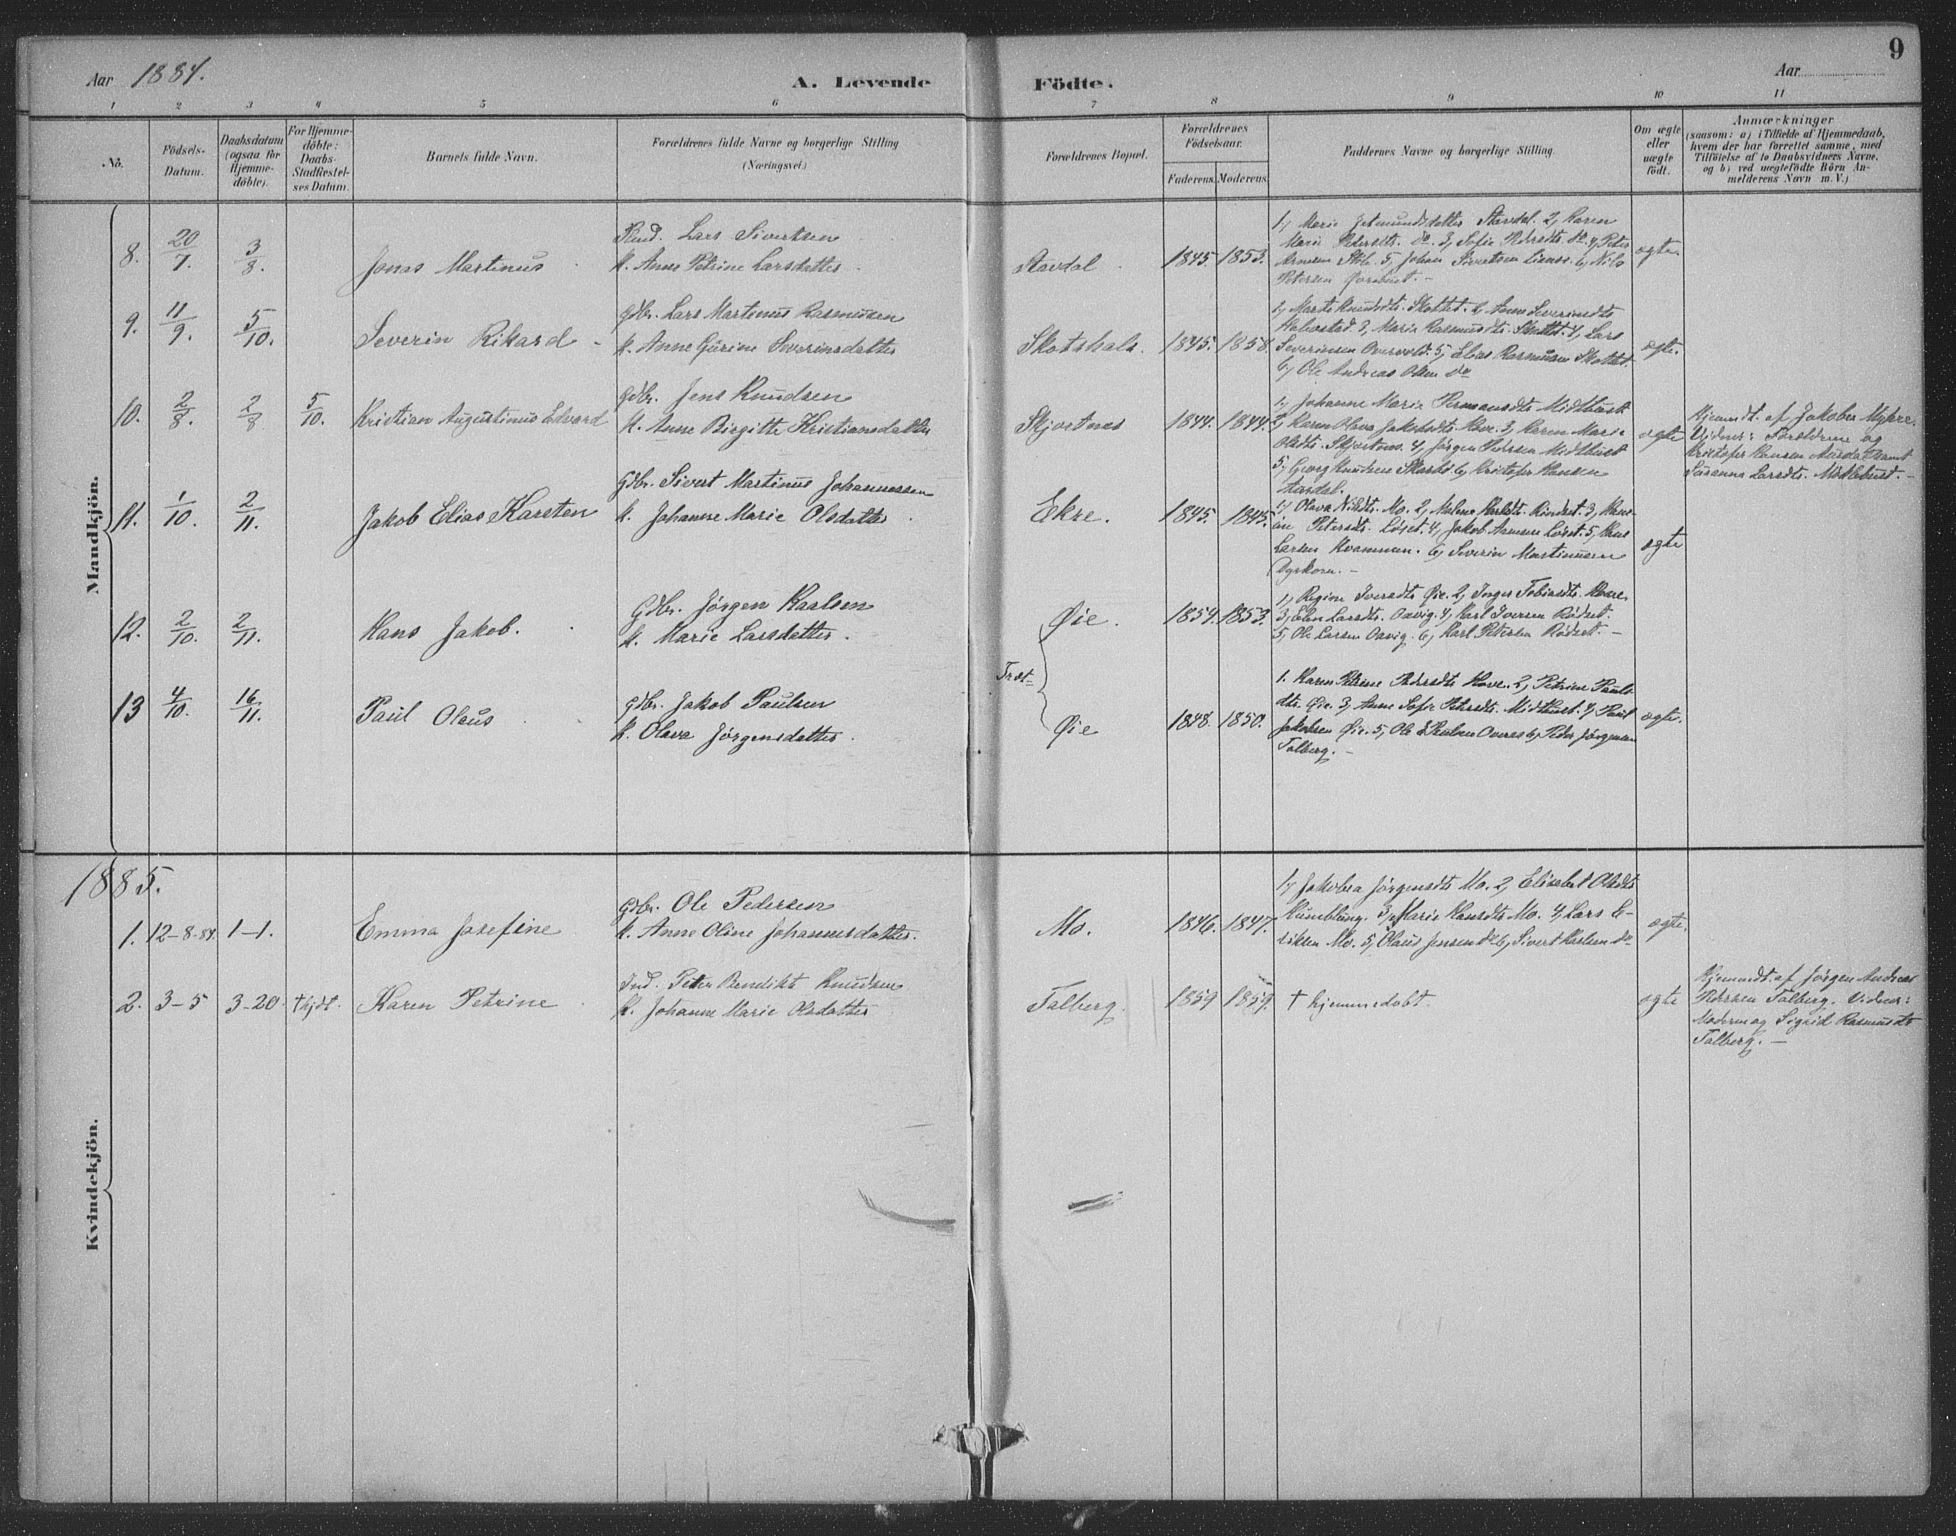 Aar 1884.
A. Levende Födte.
Aar
9
1 2 3 4 5 6 7 8 9 10 11
No.
Födsels-
Datum.
Daabsdatum
(ogsaa for
Hjemme-
döbte).
For Hjemme-
döbte:
Daabs-
Stadfæstel-
ses Datum.
Barnets fulde Navn.
Forældrenes fulde Navne og borgerlige Stilling
(Næringsvei.)
Forældrenes Bopæl.
Forældrenes
Födselsaar.
Faderens. Moderens.
Faddernes Navne og borgerlige Stilling.
Om ægte
eller
uægte
födt.
Anmærkninger
(saasom: a) i Tilfælde af Hjemmedaab,
hvem der har forrettet samme, med
Tilföielse af to Daabsvidners Navne,
og b) ved uægtefödte Börn An-
melderens Navn m. V.)
Mandkjön.
8. 20/7. 3/8. Jonas Martinus
Lars Sivertsen
K. Anne Petrine Larsdatter.
Stavdal 1845. 1853.
1, Marie Jetmundsdatter Stavdal. 2, Karen
Marie Petersdtr. do. 3, Sofie Pedersdtr. do. 4, Peter
5, Johan Sivertsen 6, Nils
Petersen
ægte
9. 11/9. 5/10. Severin Rikard
Gdbr. Lars Martinus Rasmussen
K. Anne Gurine Severinsdatter
Skotshals. 1845. 1858.
1, Marte Knudsdtr. Skottet. 2, Anne Severinsdtr.
3, Marie Rasmusdtr. Skottet. 4, Lars
Severinsen Overvold. 5, Elias Rasmussen Skottet.
6, Ole Andreas Olsen do
ægte.
10. 2/8. 2/8 5/10. Kristian Augustinus Edvard
Gdbr. Jens Knudsen
K. Anne Birgitte Kristiansdatter
Skjortnes 1844. 1844.
1, Johanne Marie Midthust
2, Karen Olava Jakobsdtr. Hove. 3, Karen Marie
Olsdtr. 4, Jørgen Pedersen Midthust
5, Georg Knudsen 6, Kristofer Hansen
Aardal.
ægte
Hjemmdt. af Jakobea Myhre.
Vidner: Forældrene og
Kristofer Hansen
Susanna Larsdtr. Mikkelbust.
11. 1/10. 2/11. Jakob Elias Karsten
Gdbr. Sivert Martinus Johannessen
K. Johanne Marie Olsdatter
Ekre. 1845. 1845.
1, Olava Nilsdtr. Mo. 2, Malene 3,
Petersdtr. Løset. 4, Jakob Løset. 5, Hans
Larsen Kvammen. 6, Severin Martinussen
Dyrkorn.
ægte
12. 2/10. 2/11. Hans Jakob.
Gdbr. Jørgen Karlsen
K. Marie Larsdatter.
Øie. 1854. 1853.
1, Regine Iversdtr. Øie. 2, Inger Tobiasdtr. Hove.
3, Elen Larsdtr. Aavig. 4, Karl Iversen Rødset.
5, Ole Larsen Aavig. 6, Karl Petersen Rødset.
Tvæt
13 4/10. 16/11. Paul Olaus
Gdbr. Jakob Paulsen
K. Olava Jørgensdatter.
Øie 1848. 1850.
1. Karen Petrine Pedersdtr. Hove. 2, Petrine Pauls-
dtr. Øie. 3, Anne Sofie Petersdtr. Midthust. 4, Paul
Jakobsen Øie. 5, Ole Paulsen 6, Peder Jørgensen
Talberg.
ægte.
1885.
Kvindekjön.
1. 12-8-84. 1-1. Emma Josefine
Gdbr. Ole Pedersen
K. Anne Oline Johannesdatter.
Mo. 1846. 1847.
1, Jakobea Jørgensdtr. Mo. 2, Elisabet Olsdtr.
Humbling. 3, Marie Hansdtr. Mo. 4, Lars E-
riksen Mo. 5, Olaus Jensen do 6, Sivert Karlsen do
ægte.
2. 3-5 3-20 † hjdt. Karen Petrine
Ind. Peter Benedikt Knudsen
K. Johanne Marie Olsdatter
Talberg. 1859 1859.
† hjemmedøbt.
ægte
Hjemmdt. af Jørgen Andreas
Pedersen Talberg. Vidner:
Moderen og Sigrid Rasmusdtr.
Talberg.